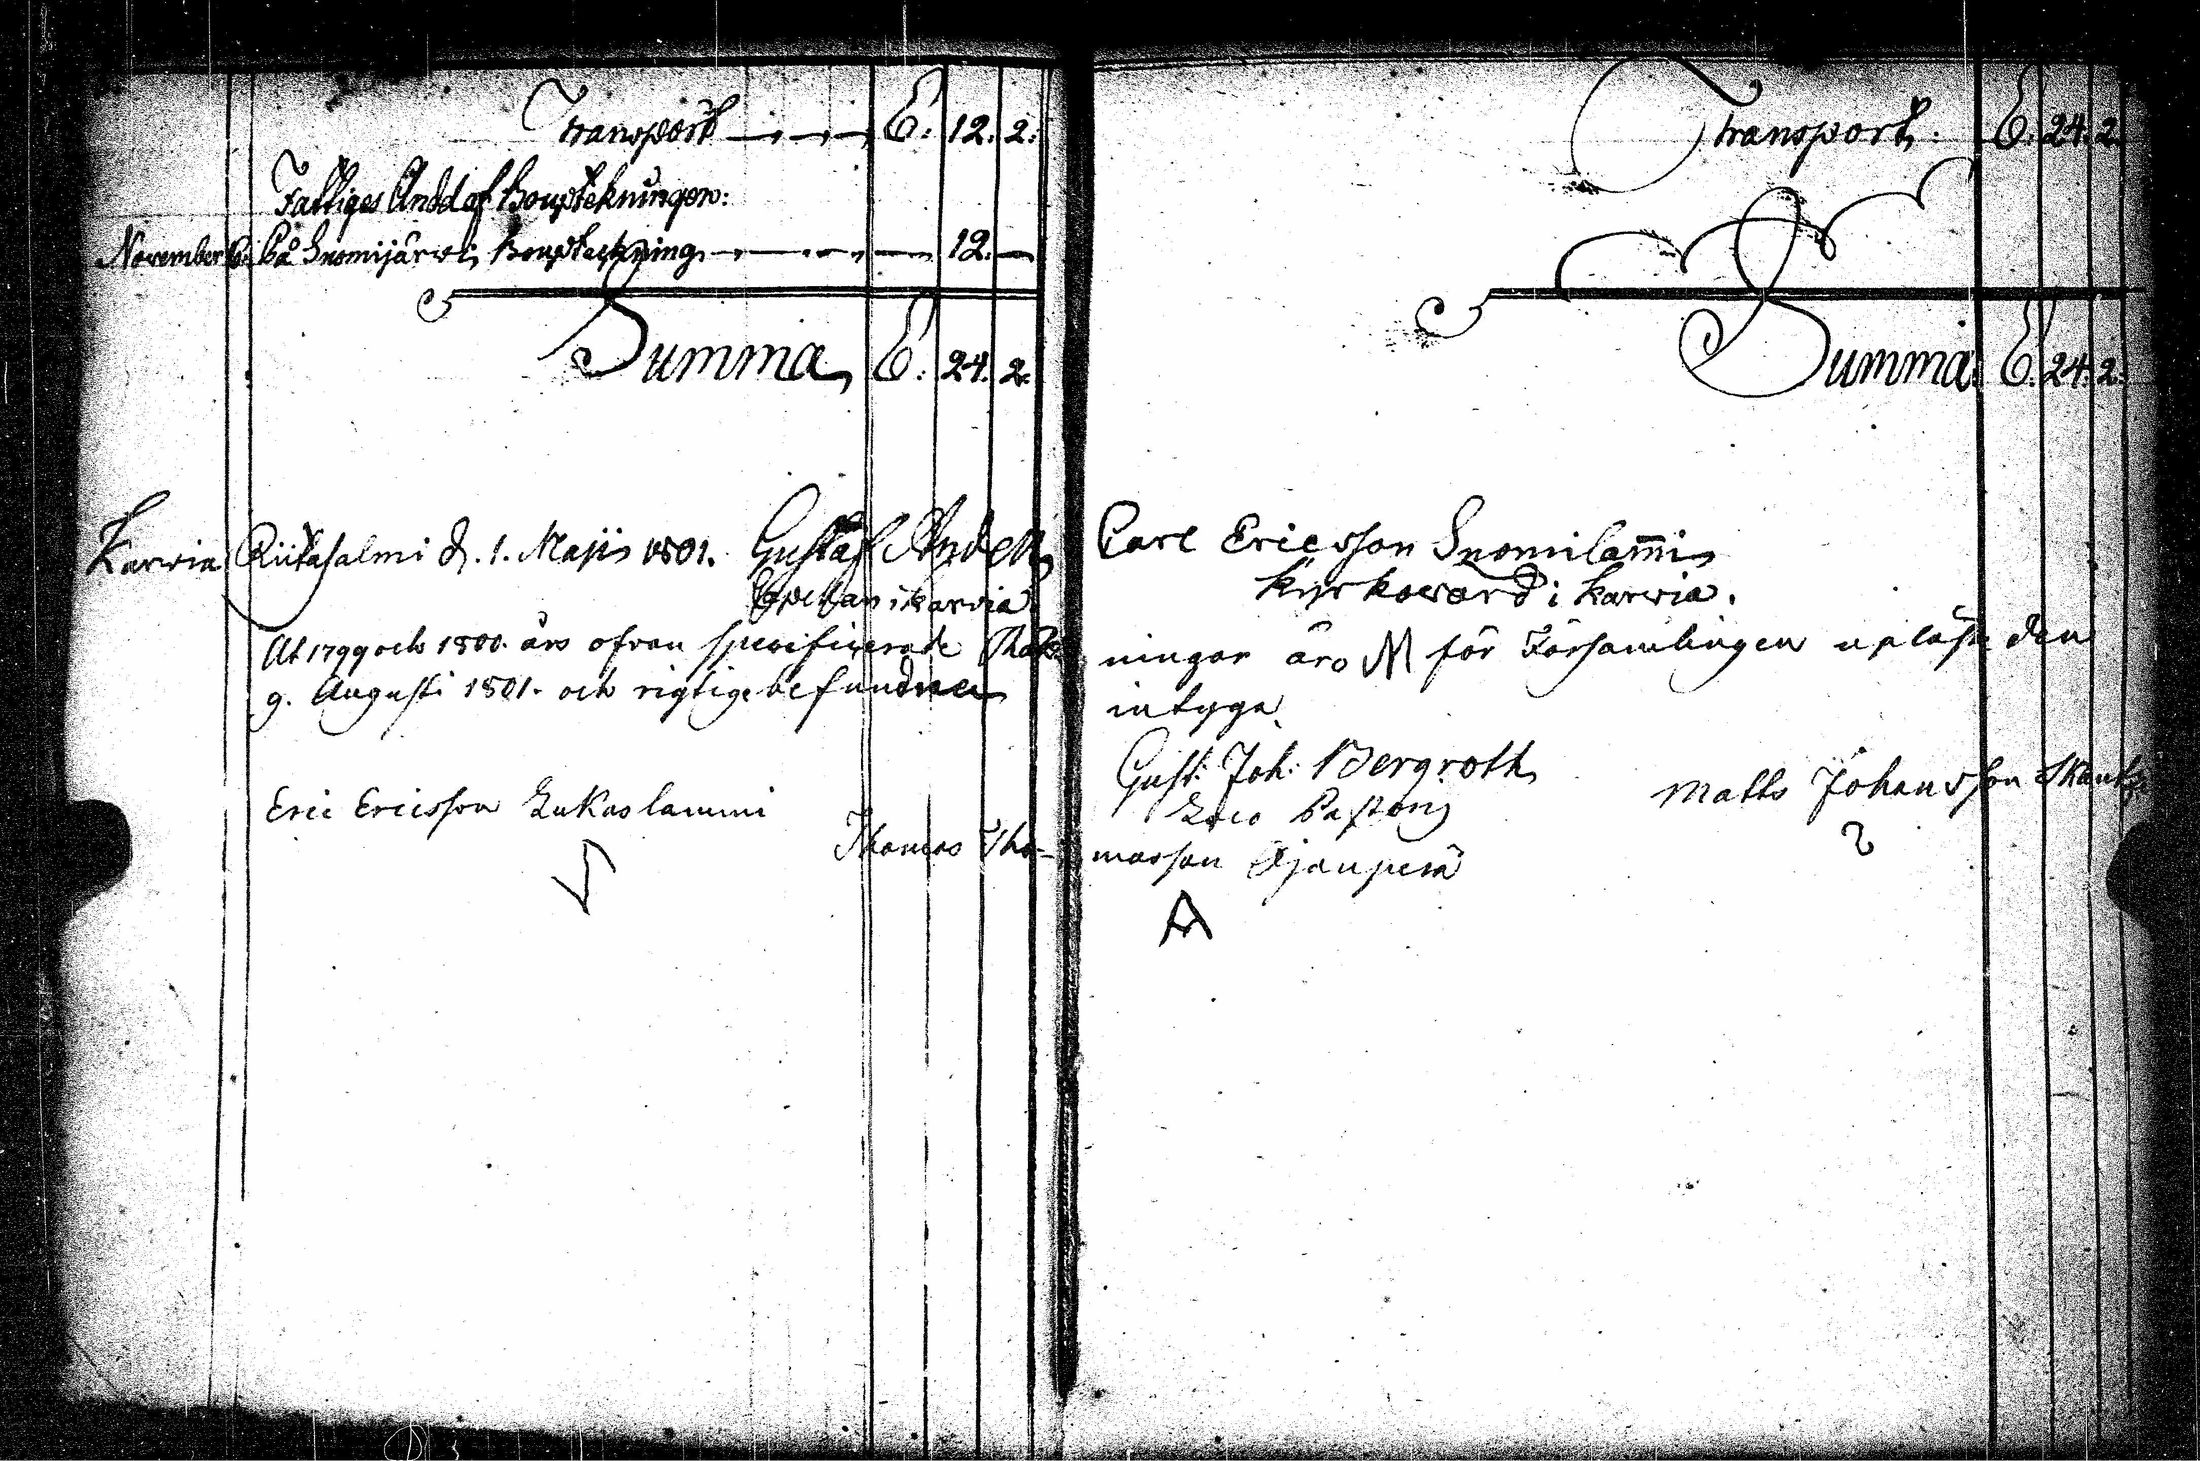 Transport 6. 12. 2.
Fattiges Andel af Bouptekningen:
November 6. På Suomijärvi Bouptekning 12. —
Summa 6. 24. 2.
Karvia Riitasalmi d. 1. Maji 1801. Gustaf
Capellan i Karvia
At 1799 och 1800. års ofvan specificerade Räk
9. Augusti 1801. och rigtige befundne
Eric Ericsson Lukaslammi
Thomas Tho-
Transport. 6. 24. 2.
Summa. 6. 24. 2.
Carl Ericsson Suomilam̄i
Kyrkovärd i Karvia.
ningar äro för Församlingen upläste den
intyga
Gust. Joh: Bergroth
Loco Pastoris
Matts Johansson
masson Ojanperä